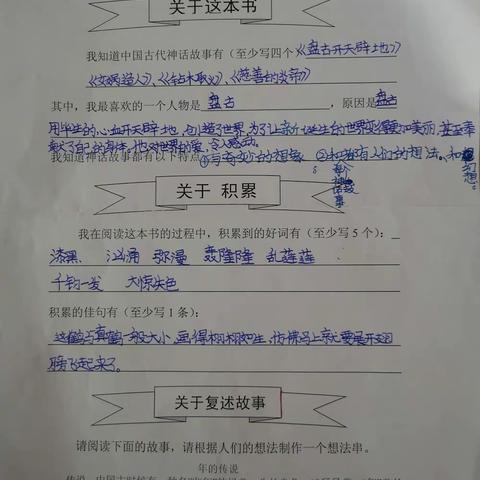 关于这本书
我知道中国古代神话故事有（至少写四个《盘古开天辟地》
《女娲造人》、《钻木取火》、《慈善的炎帝》
其中，我最喜欢的一个人物是 盘古 ，原因是盘古
用毕生的心血开天辟地，创造了世界，为了让新诞生的世界变得更加美丽，甚至奉
献了自己的身体。他对世界的爱，令人感动。
我知道神话故事都有以下特点：①与奇交台的想象 ②和着有人们的想法、和
每个神话故事
幻想。
关于 积累
我在阅读这本书的过程中，积累到的好词有（至少写 5 个）：
漆黑 汹涌 弥漫 轰隆隆 乱蓬蓬
千钧一发 大惊失色
积累的佳句有（至少写 1 条）：
这鹤与真鹤一般大小，画得栩栩如生，仿佛马上就要展开翅
膀飞起来了。
关于复述故事
请阅读下面的故事，请根据人们的想法制作一个想法串。
年的传说